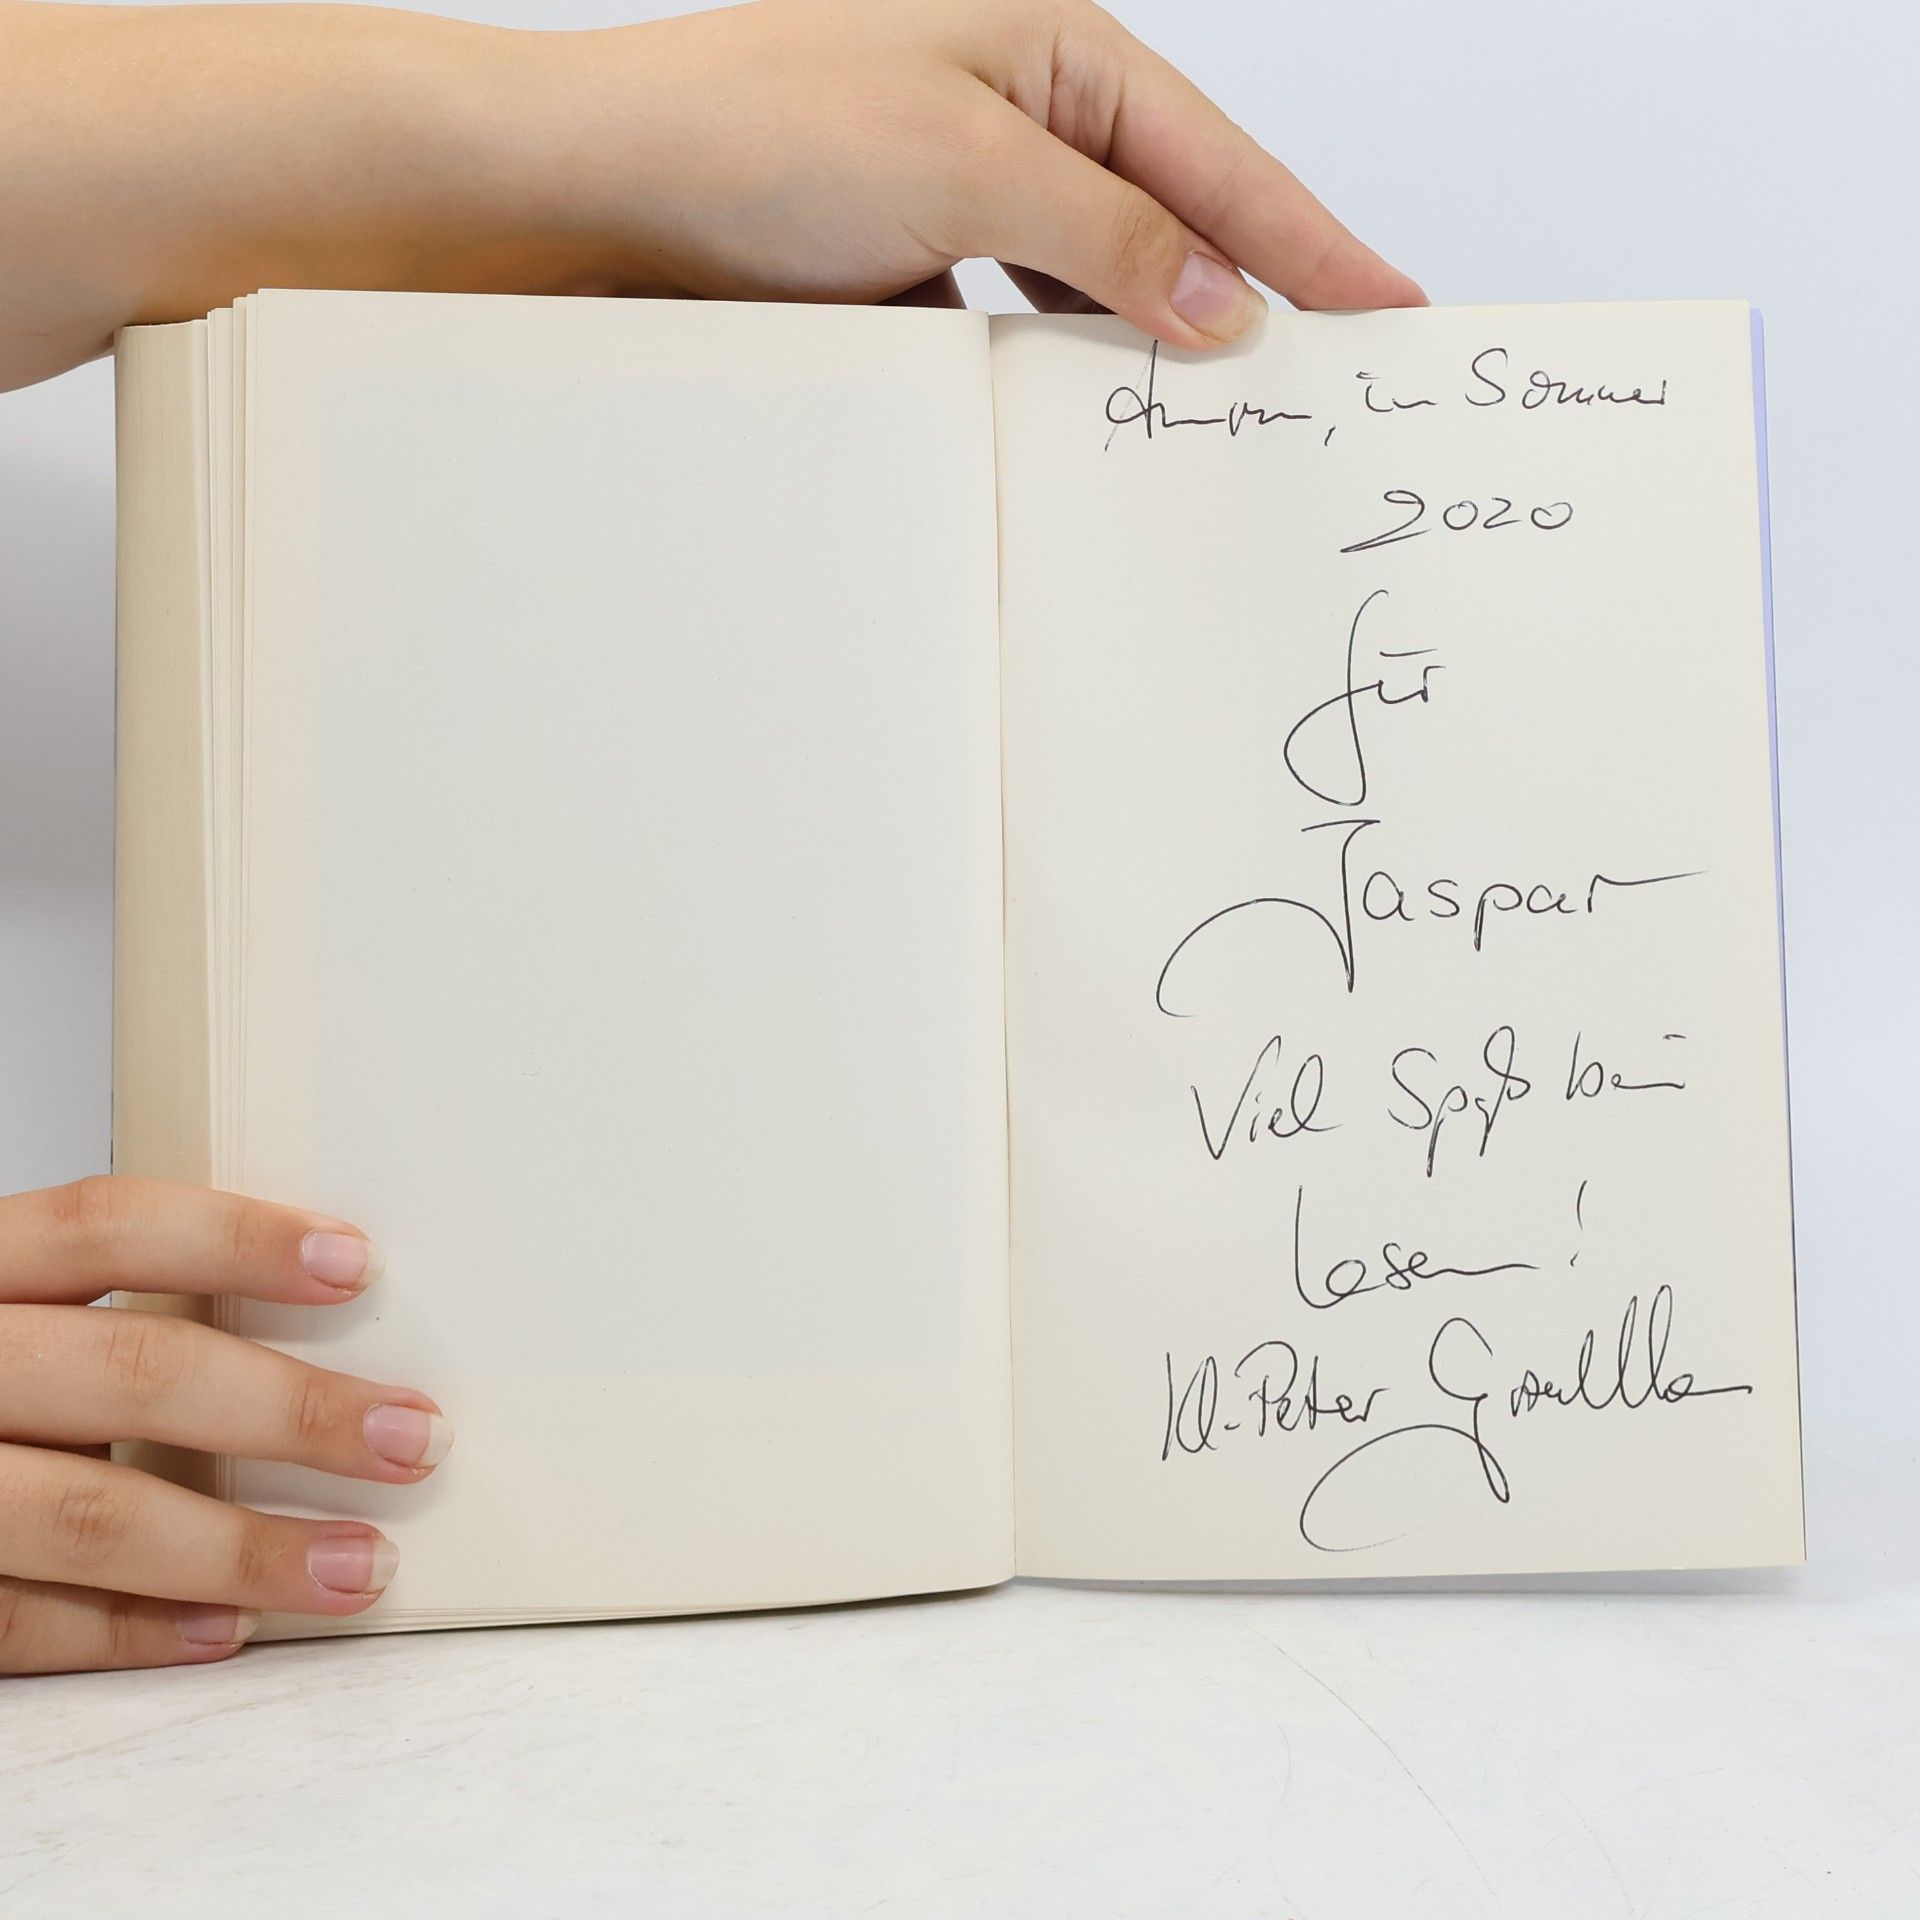 Amrum, im Sommer
2020
für
Jaspar
Viel Spaß beim
Lesen!
Kl.-Peter